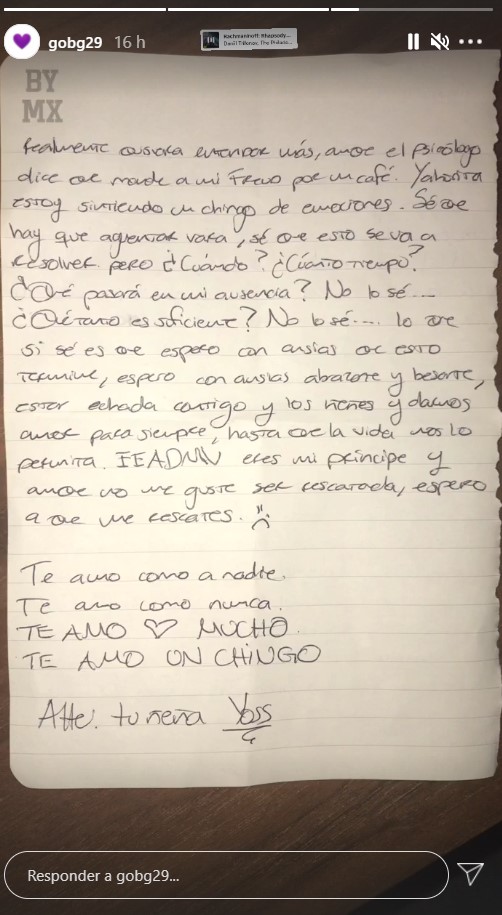 gobg29 16 h
Rachmaninoff: Rhapsody...
Daniil Trifonov, The Philade...
BY
MX
Realmente quisiera entender más, aunque el psicólogo
dice que mande a mi Freud por un café. Y ahorita
estoy sintiendo un chingo de emociones. Sé que
hay que aguantar vara, sé que esto se va a
resolver pero ¿Cuándo? ¿Cuánto tiempo?
¿Qué pasará en mi ausencia? No lo sé...
¿Qué tanto es suficiente? No lo sé.... lo que
si sé es que espero con ansias que esto
termine, espero con ansias abrazarte y besarte,
estar echada contigo y los nenes y darnos
amor para siempre, hasta que la vida nos lo
permita. eres mi príncipe y
aunque no me guste ser rescatada, espero
a que me rescates. :(
Te amo como a nadie.
Te amo como nunca.
TE AMO ♡ MUCHO.
TE AMO UN CHINGO
Atte: tu nena Yoss
Responder a gobg29...